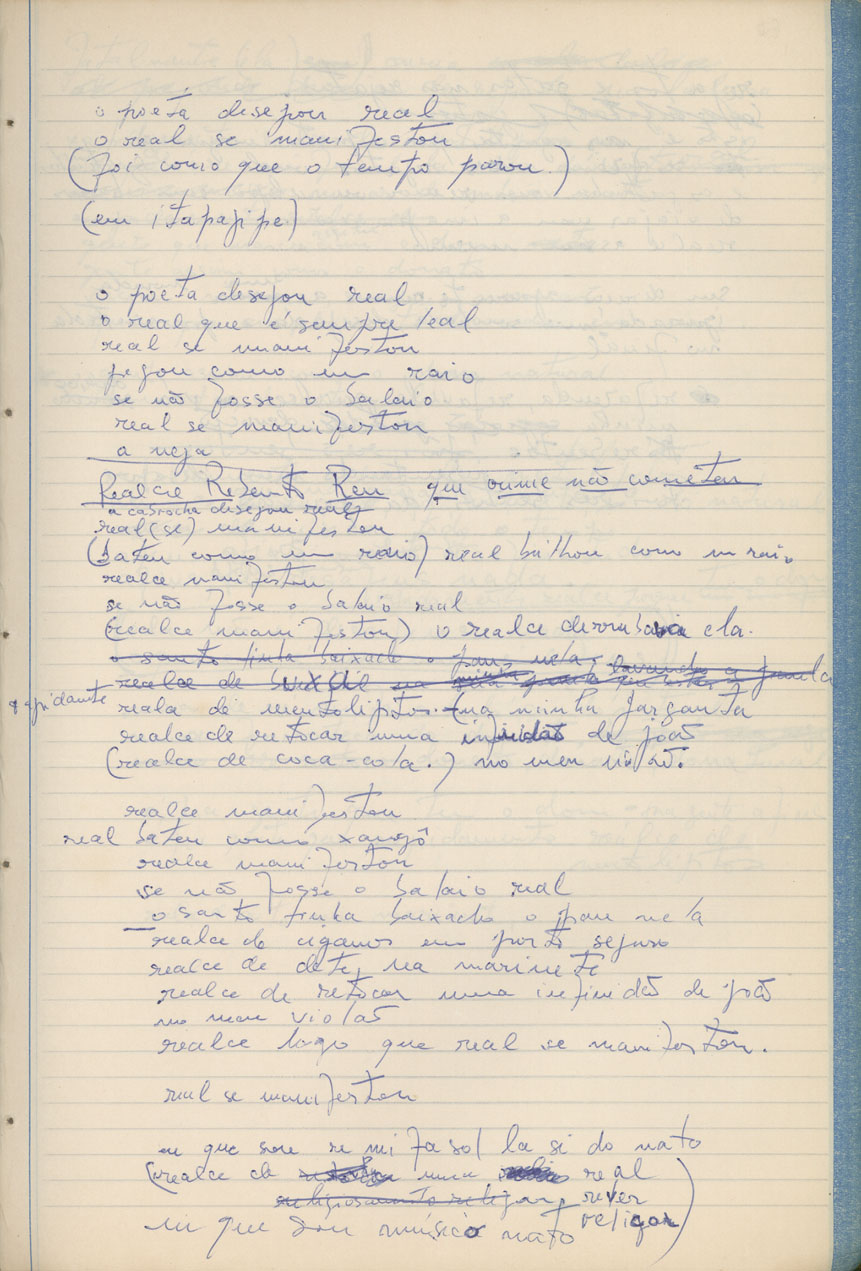 o poeta desejou real
o real se manifestou
(foi como que o tempo parou.)
(em itapajipe)
o poeta desejou real
o real que é sempre leal
real se manifestou
pegou como um raio
se não fosse o balaio
real se manifestou
a nega
Realce Rebento Reu que crime não cometeu
a cabrocha desejou real
real (se) manifestou
(bateu como um raio) real brilhou como um raio
realce manifestou
se não fosse o balaio real
(realce manifestou) o realce derrubava ela.
o santo tinha baixado o pau nela,
realce de
reala de mentoliptos na minha garganta
realce de retocar uma infinidão de joão
(realce de coca-cola.) no meu violão.
realce manifestou
real bateu como xangô
realce manifestou
se não fosse o balaio real
o santo tinha baixado o pau nela
realce de ciganos em porto seguro
realce de dete, na marinete
realce de retocar uma infinidão de joão
no meu violão
realce logo que real se manifestou.
real se manifestou
eu que sou re mi fa sol la si do nato
(realce de uma real
rever
religar)
eu que sou músico nato